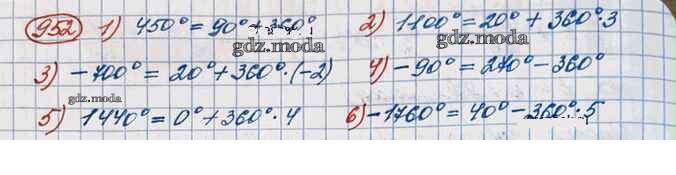 952 1) 450° = 90° + 360° 2) 1100° = 20° + 360°·3
gdz.moda gdz.moda
3) -700° = 20° + 360°·(-2) 4) -90° = 270° - 360°
gdz.moda gdz.moda
5) 1440° = 0° + 360°·4 6) -1760° = 40° - 360°·5